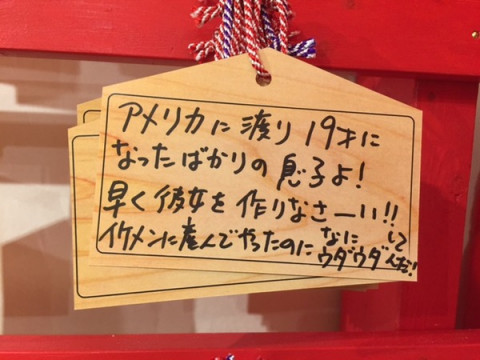 アメリカに渡り19才に
なったばかりの息子よ!
早く彼女を作りなさーい!!
イケメンに産んでやったのになにウダウダしてんだ!